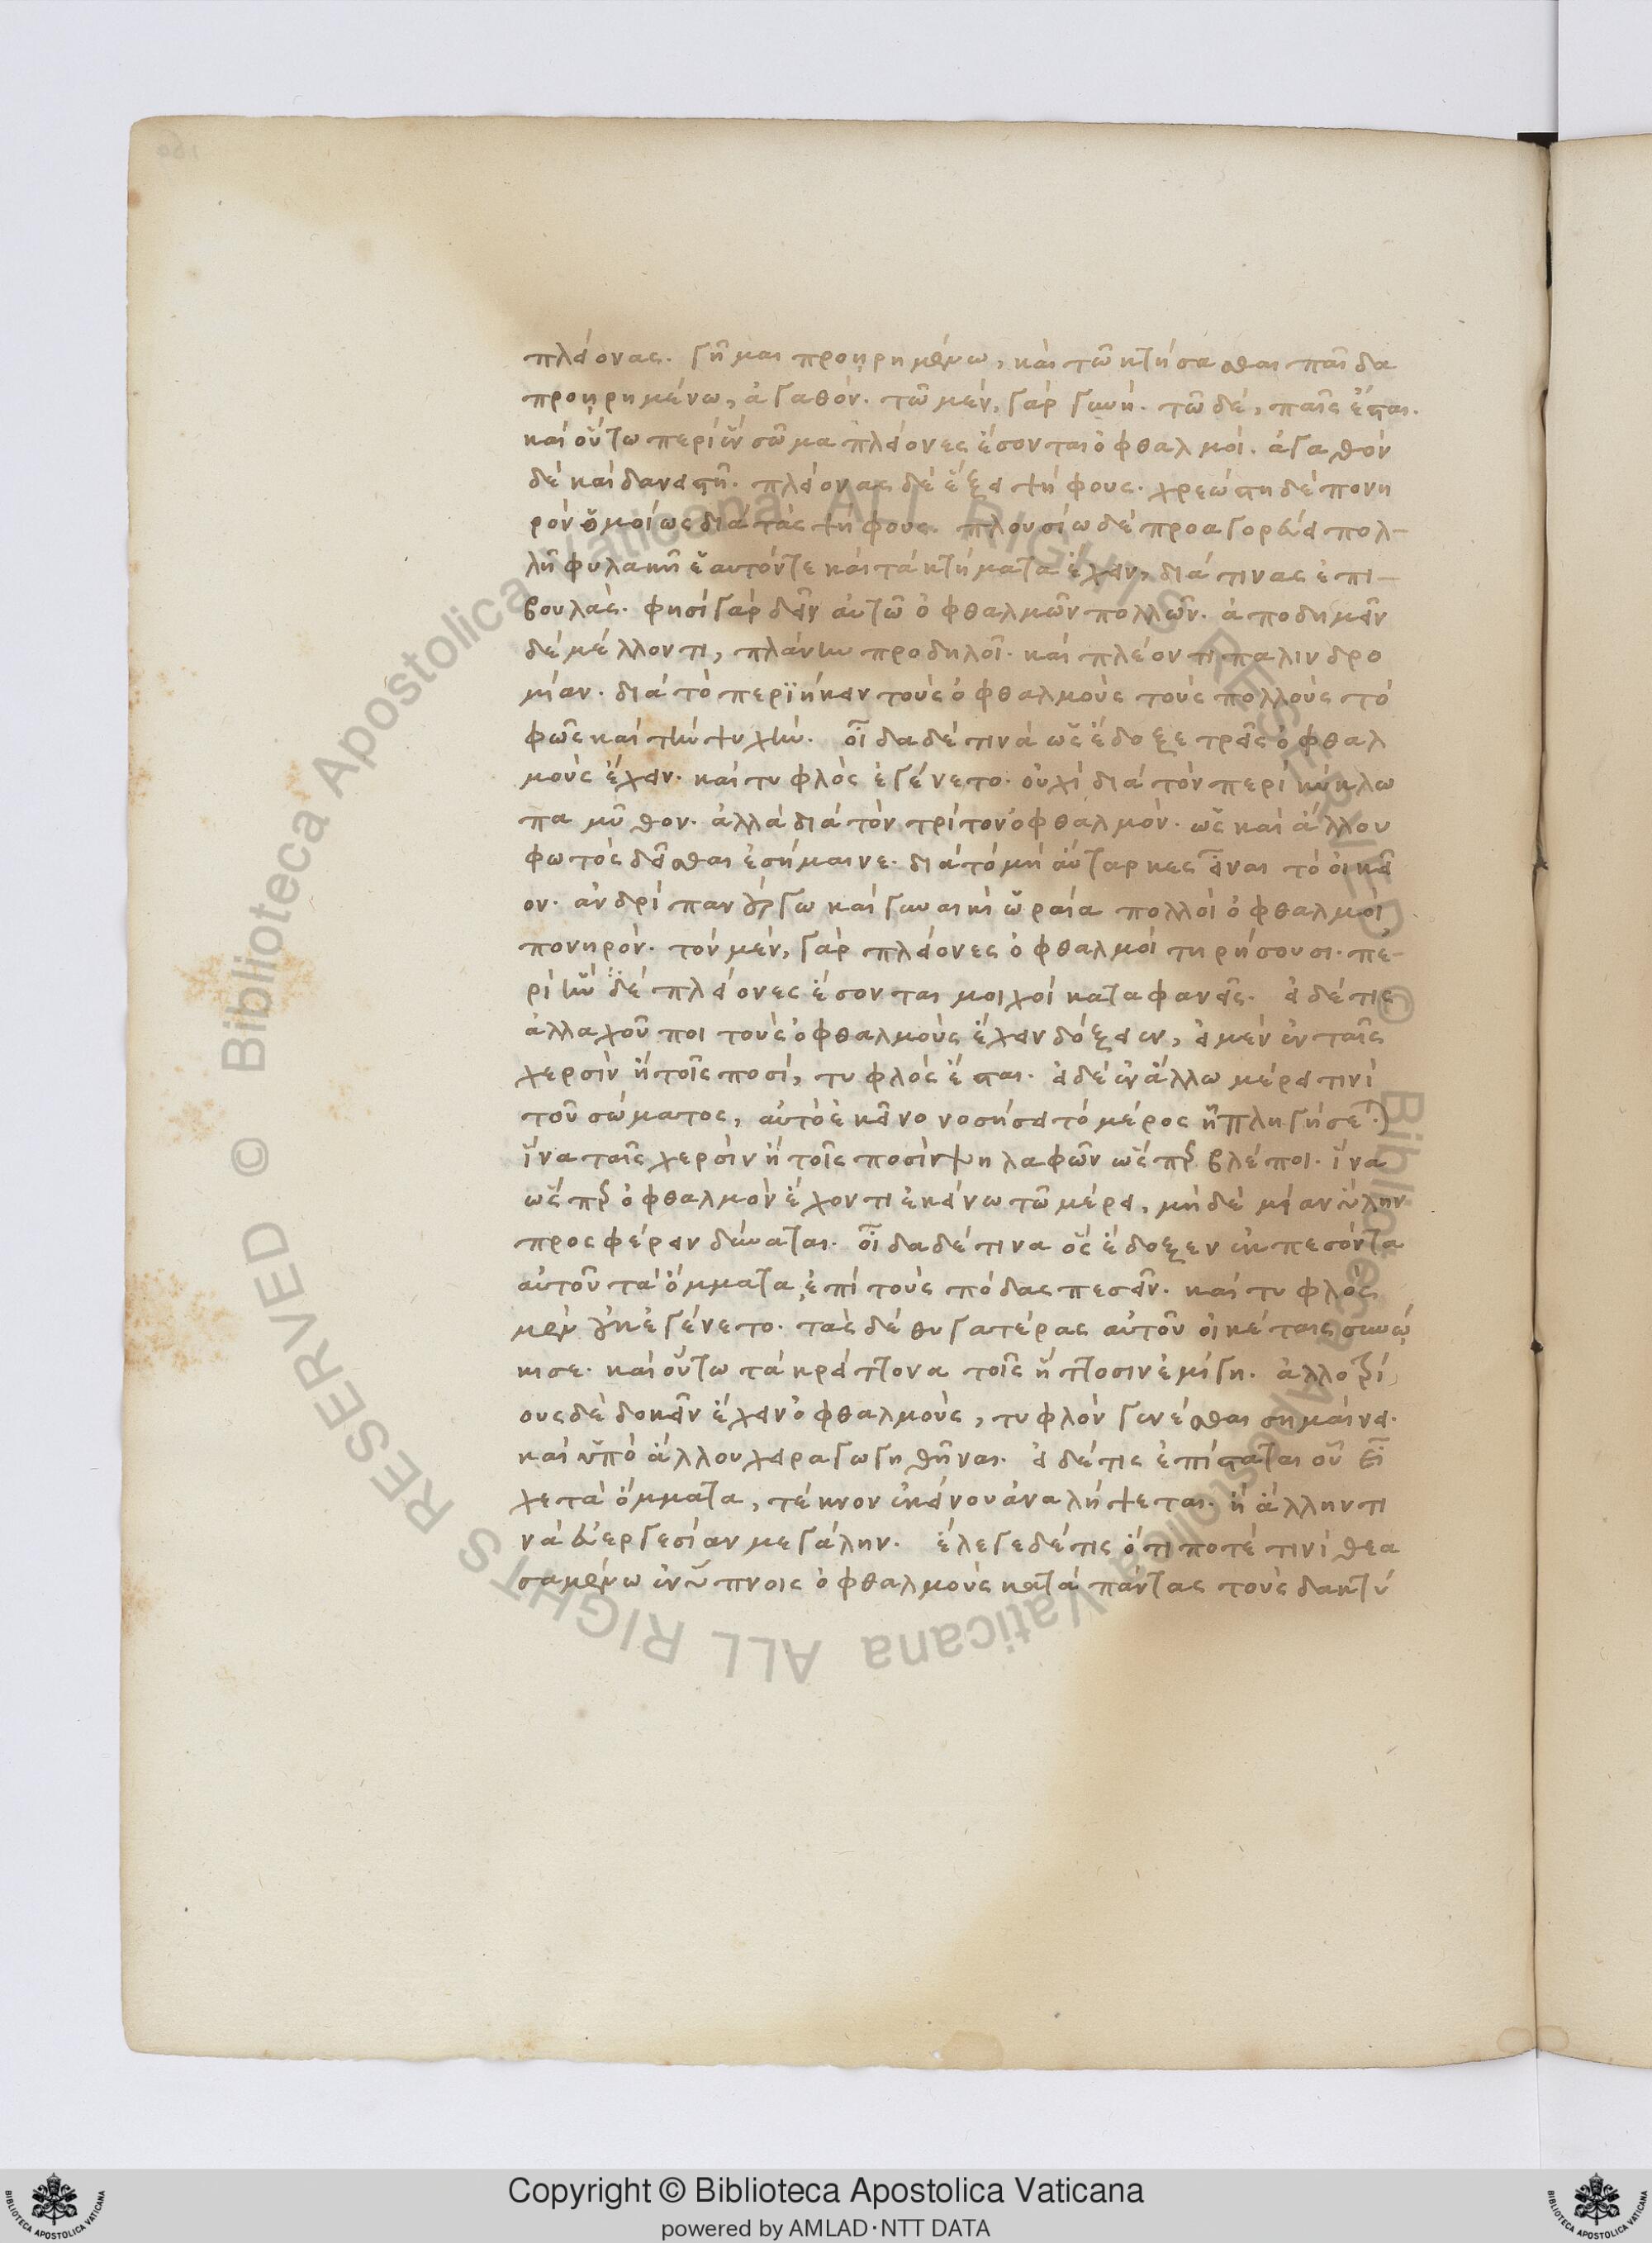 πλείονας. γῆμαι προῃρημένω, καὶ τῶ κτήσασθαι παῖδα
προῃρημένω, ἀγαθόν. τῶ μὲν, γὰρ γυνή. τῶ δὲ, παῖς ἔσται.
καὶ οὕτω περὶ ἓν σῶμα πλείονες ἔσονται ὀφθαλμοί. ἀγαθὸν
δὲ καὶ δανειστῆ. πλείονας δὲ ἕξει ψήφους. χρεώστη δὲ πονη
ρὸν ὁμοίως διὰ τὰς ψήφους. πλουσίω δὲ προαγορεύει πολ-
λῆ φυλακῆ ἑαυτόν τε καὶ τὰ κτήματα ἔχειν, διά τινας ἐπι-
βουλάς. φησὶ γὰρ δεῖν αὐτῶ ὀφθαλμῶν πολλῶν. ἀποδημεῖν
δὲ μέλλοντι, πλάνην προδηλοῖ. καὶ πλέοντι παλινδρο
μίαν. διὰ τὸ περιήκειν τοὺς ὀφθαλμοὺς τοὺς πολλοὺς τὸ
φῶς καὶ τὴν ψυχήν. οἶδα δέ τινα ὡς ἔδοξε τρεῖς ὀφθαλ
μοὺς ἔχειν. καὶ τυφλὸς ἐγένετο. οὐχὶ διὰ τὸν περὶ κύκλω
πα μῦθον. ἀλλὰ διὰ τὸν τρίτον ὀφθαλμόν. ὡς καὶ ἄλλου
φωτὸς δεῖσθαι ἐσήμαινε. διὰ τὸ μὴ αὔταρκες εἶναι τὸ οἰκεῖ
ον. ἀνδρὶ πανούργω καὶ γυναικὶ ὡραία πολλοὶ ὀφθαλμοὶ
πονηρόν. τὸν μὲν, γὰρ πλείονες ὀφθαλμοὶ τηρήσουσι. πε-
ρὶ ἣν δὲ πλείονες ἔσονται μοιχοὶ καταφανεῖς. εἰ δέ τις
ἀλλαχοῦ ποι τοὺς ὀφθαλμοὺς ἔχειν δόξειεν, εἰ μὲν ἐν ταῖς
χερσὶν ἢ τοῖς ποσὶ, τυφλὸς ἔσται. εἰ δὲ ἐν ἄλλω μέρει τινὶ
τοῦ σώματος, αὐτὸ ἐκεῖνο νοσήσει τὸ μέρος ἢ πληγήσεται.
ἵνα ταῖς χερσὶν ἢ τοῖς ποσὶν ψηλαφῶν ὥσπερ βλέποι. ἵνα
ὥσπερ ὀφθαλμὸν ἔχοντι ἐκείνω τῶ μέρει, μηδὲ μίαν ὕλην
προσφέρειν δύναται. οἶδα δέ τινα ὃς ἔδοξεν ἐκπεσόντα
αὐτοῦ τὰ ὄμματα, ἐπὶ τοὺς πόδας πεσεῖν. καὶ τυφλὸς
μὲν οὐκ ἐγένετο. τὰς δὲ θυγατέρας αὐτοῦ οἰκέταις συνώ
κισε. καὶ οὕτω τὰ κρείττονα τοῖς ἥττοσιν ἐμίγη. ἀλλοτρί
ους δὲ δοκεῖν ἔχειν ὀφθαλμοὺς, τυφλὸν γενέσθαι σημαίνει.
καὶ ὑπὸ ἄλλου χειραγωγηθῆναι. εἰ δέ τις ἐπίσταται οὗ εἶ
χε τὰ ὄμματα, τέκνον ἐκείνου ἀναλήψεται. ἢ ἄλλην τι
νὰ εὐεργεσίαν μεγάλην. ἔλεγε δέ τις ὅτι ποτέ τινι θεα
σαμένω ἐν ὕπνοις ὀφθαλμοὺς κατὰ πάντας τοὺς δακτύ